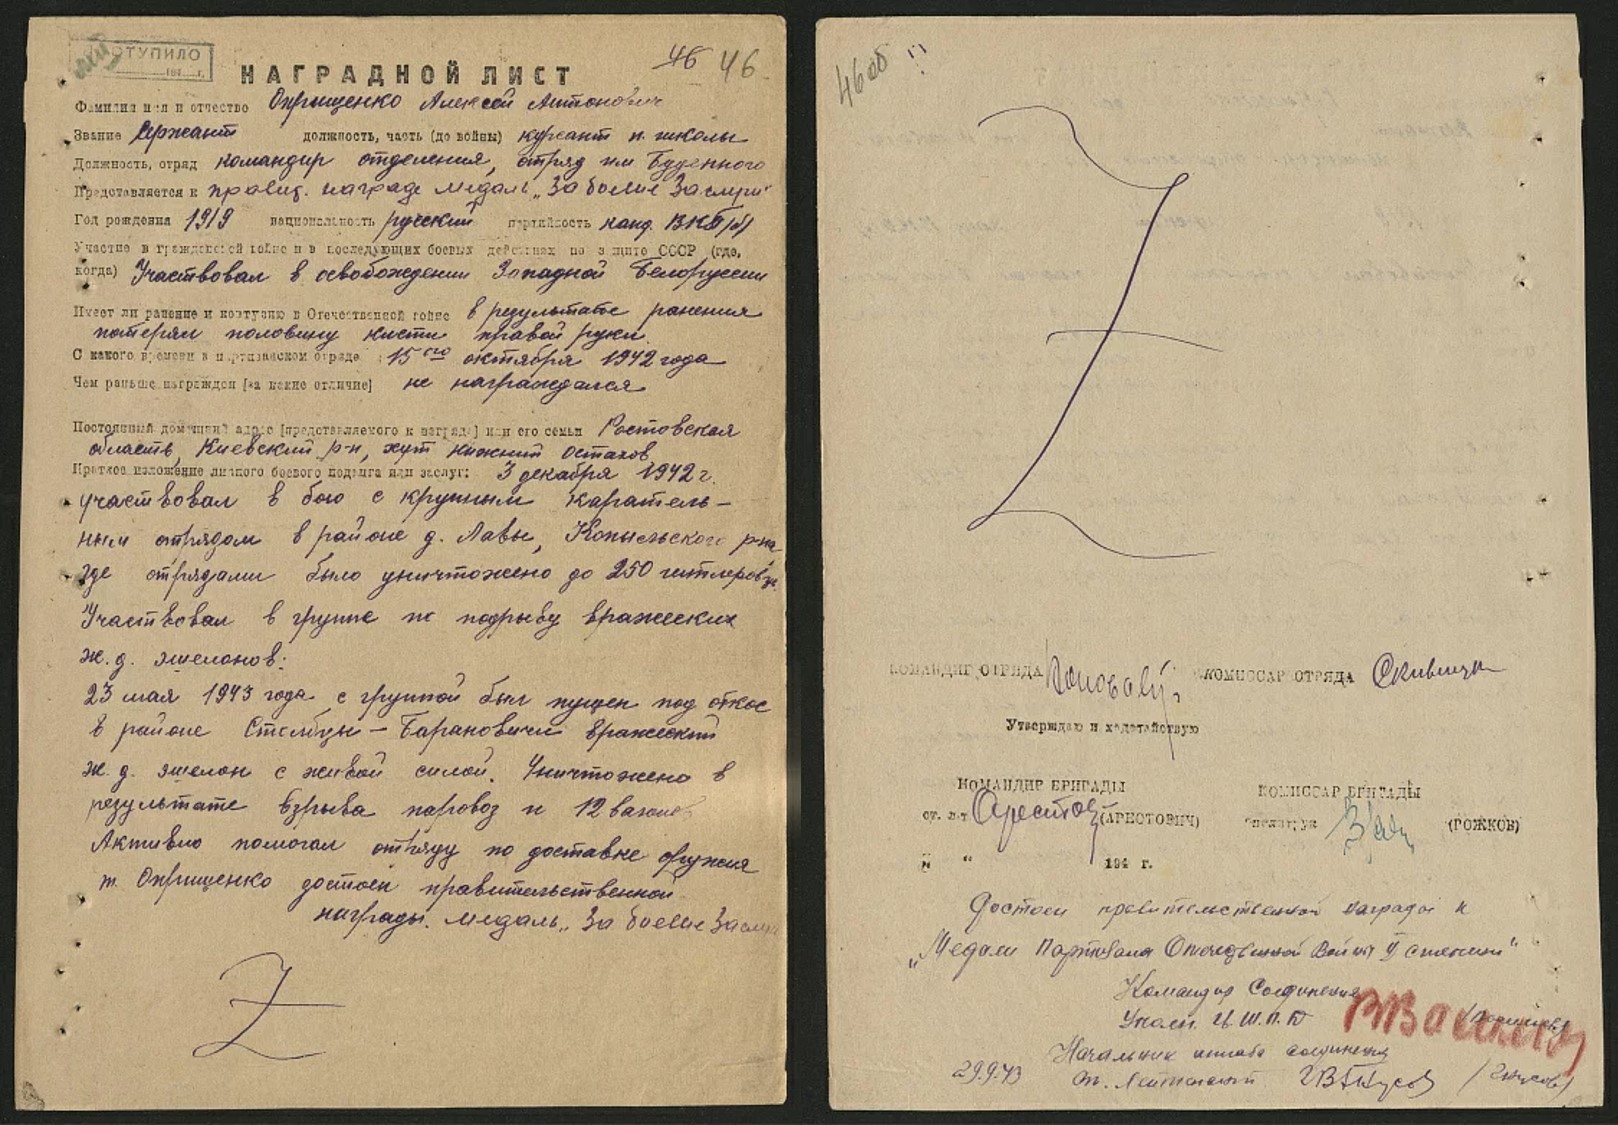 ПОСТУПИЛО
194 г.
46 46
НАГРАДНОЙ ЛИСТ
Фамилия имя и отчество Оприщенко Алексей Антонович
Звание Сержант должность, часть (до войны) курсант п. школы
Должность, отряд командир отделения, отряд им Буденного
Представляется к правит. награде медаль „За боевые Заслуги"
Год рождения 1919 национальность русский партийность канд. ВКП(б)
Участие в гражданской войне и в последующих боевых действиях по защите СССР (где,
когда) Участвовал в освобождении Западной Белоруссии
Имеет ли ранение и контузию в Отечественной войне в результате ранения
потерял половину кисти правой руки
С какого времени в партизанском отряде 15ого октября 1942 года
Чем раньше награжден [за какие отличие] не награждался
Постоянный домашний адрес [представляемого к награде] или его семьи Ростовская
область, Киевский р-н, хут нижний Остахов
Краткое изложение личного боевого подвига или заслуг: 3 декабря 1942 г.
участвовал в бою с крупным каратель-
ным отрядом в районе д. Лавы, Копыльского р-на
где отрядами было уничтожено до 250 гитлеровцев.
Участвовал в группе по подрыву вражеских
ж.д. эшелонов:
23 мая 1943 года с группой был пущен под откос
в районе Столбцы – Барановичи вражеский
ж.д. эшелон с живой силой. Уничтожено в
результате взрыва паровоз и 12 вагонов
Активно помогал отряду по доставке оружия
т. Оприщенко достоин правительственной
награды. медаль „За боевые Заслуги
46 об
КОМАНДИР ОТРЯДА КОМИССАР ОТРЯДА
Утверждаю и ходатайствую
КОМАНДИР БРИГАДЫ КОМИССАР БРИГАДЫ
ст. л-т (АРЕСТОВИЧ) политрук (РОЖКОВ)
" " 194 г.
Достоин правительственной награды к
„Медали Партизана Отечественной Войны II степени"
Командир Соединения
Уполн. Ц.Ш.П.Д
Начальник штаба соединения
29.9.43 ст. Лейтенант